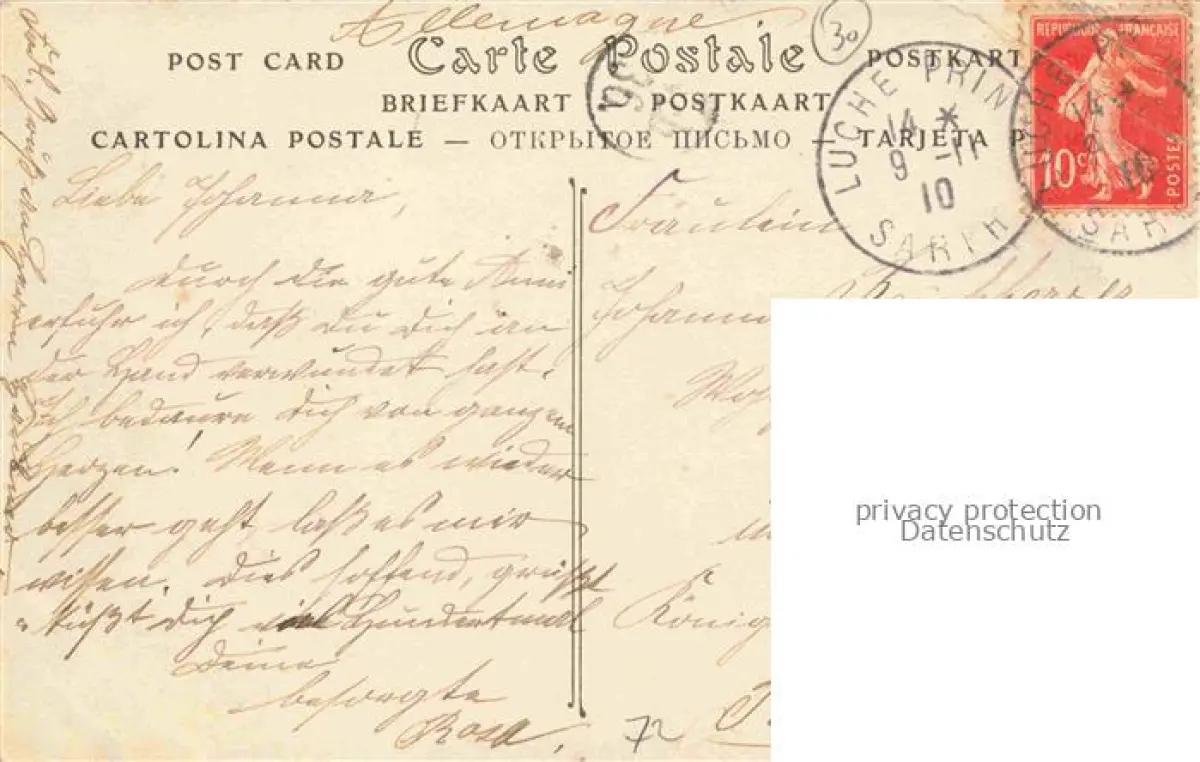 Allemagne
30
POST CARD Carte Postale POSTKART
BRIEFKAART POSTKAART
CARTOLINA POSTALE — ОТКРЫТОЕ ПИСЬМО — TARJETA P
LUCHE PRIN
14 *
9 -11
10
SARTHE
REPUBLIQUE FRANÇAISE
10c
POSTES
Liebe Johanna,
durch die gute
erfuhr ich, daß Du Dich an
der Hand verwundet hast.
Ich bedaure Dich von ganzem
Herzen! Wenn es wieder
besser geht, laß es mir
wissen. Dies hoffend, grüßt
küßt Dich viel Hundertmal
Deine
besorgte
Rosa.
Fräulein
Johanna
König
72
privacy protection
Datenschutz